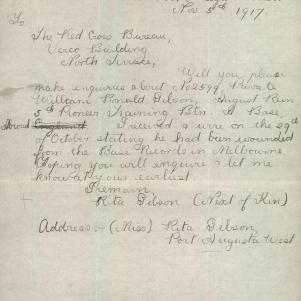 Nov 5th 1917
To
The Red Cross Bureau,
Verco Building
North Terrace,
Will you please
make enquiries about No 2599 Private
William Ronald Gibson, August Rein
5th Pioneer Training Btn. Base
Abroad England I received a wire on the 29th
of October stating he had been wounded
from the Base Records in Melbourne
Hoping you will enquire & let me
know at your earliest
I remain
Rita Gibson (Next of Kin)
Address:- (Miss) Rita Gibson,
Port Augusta West